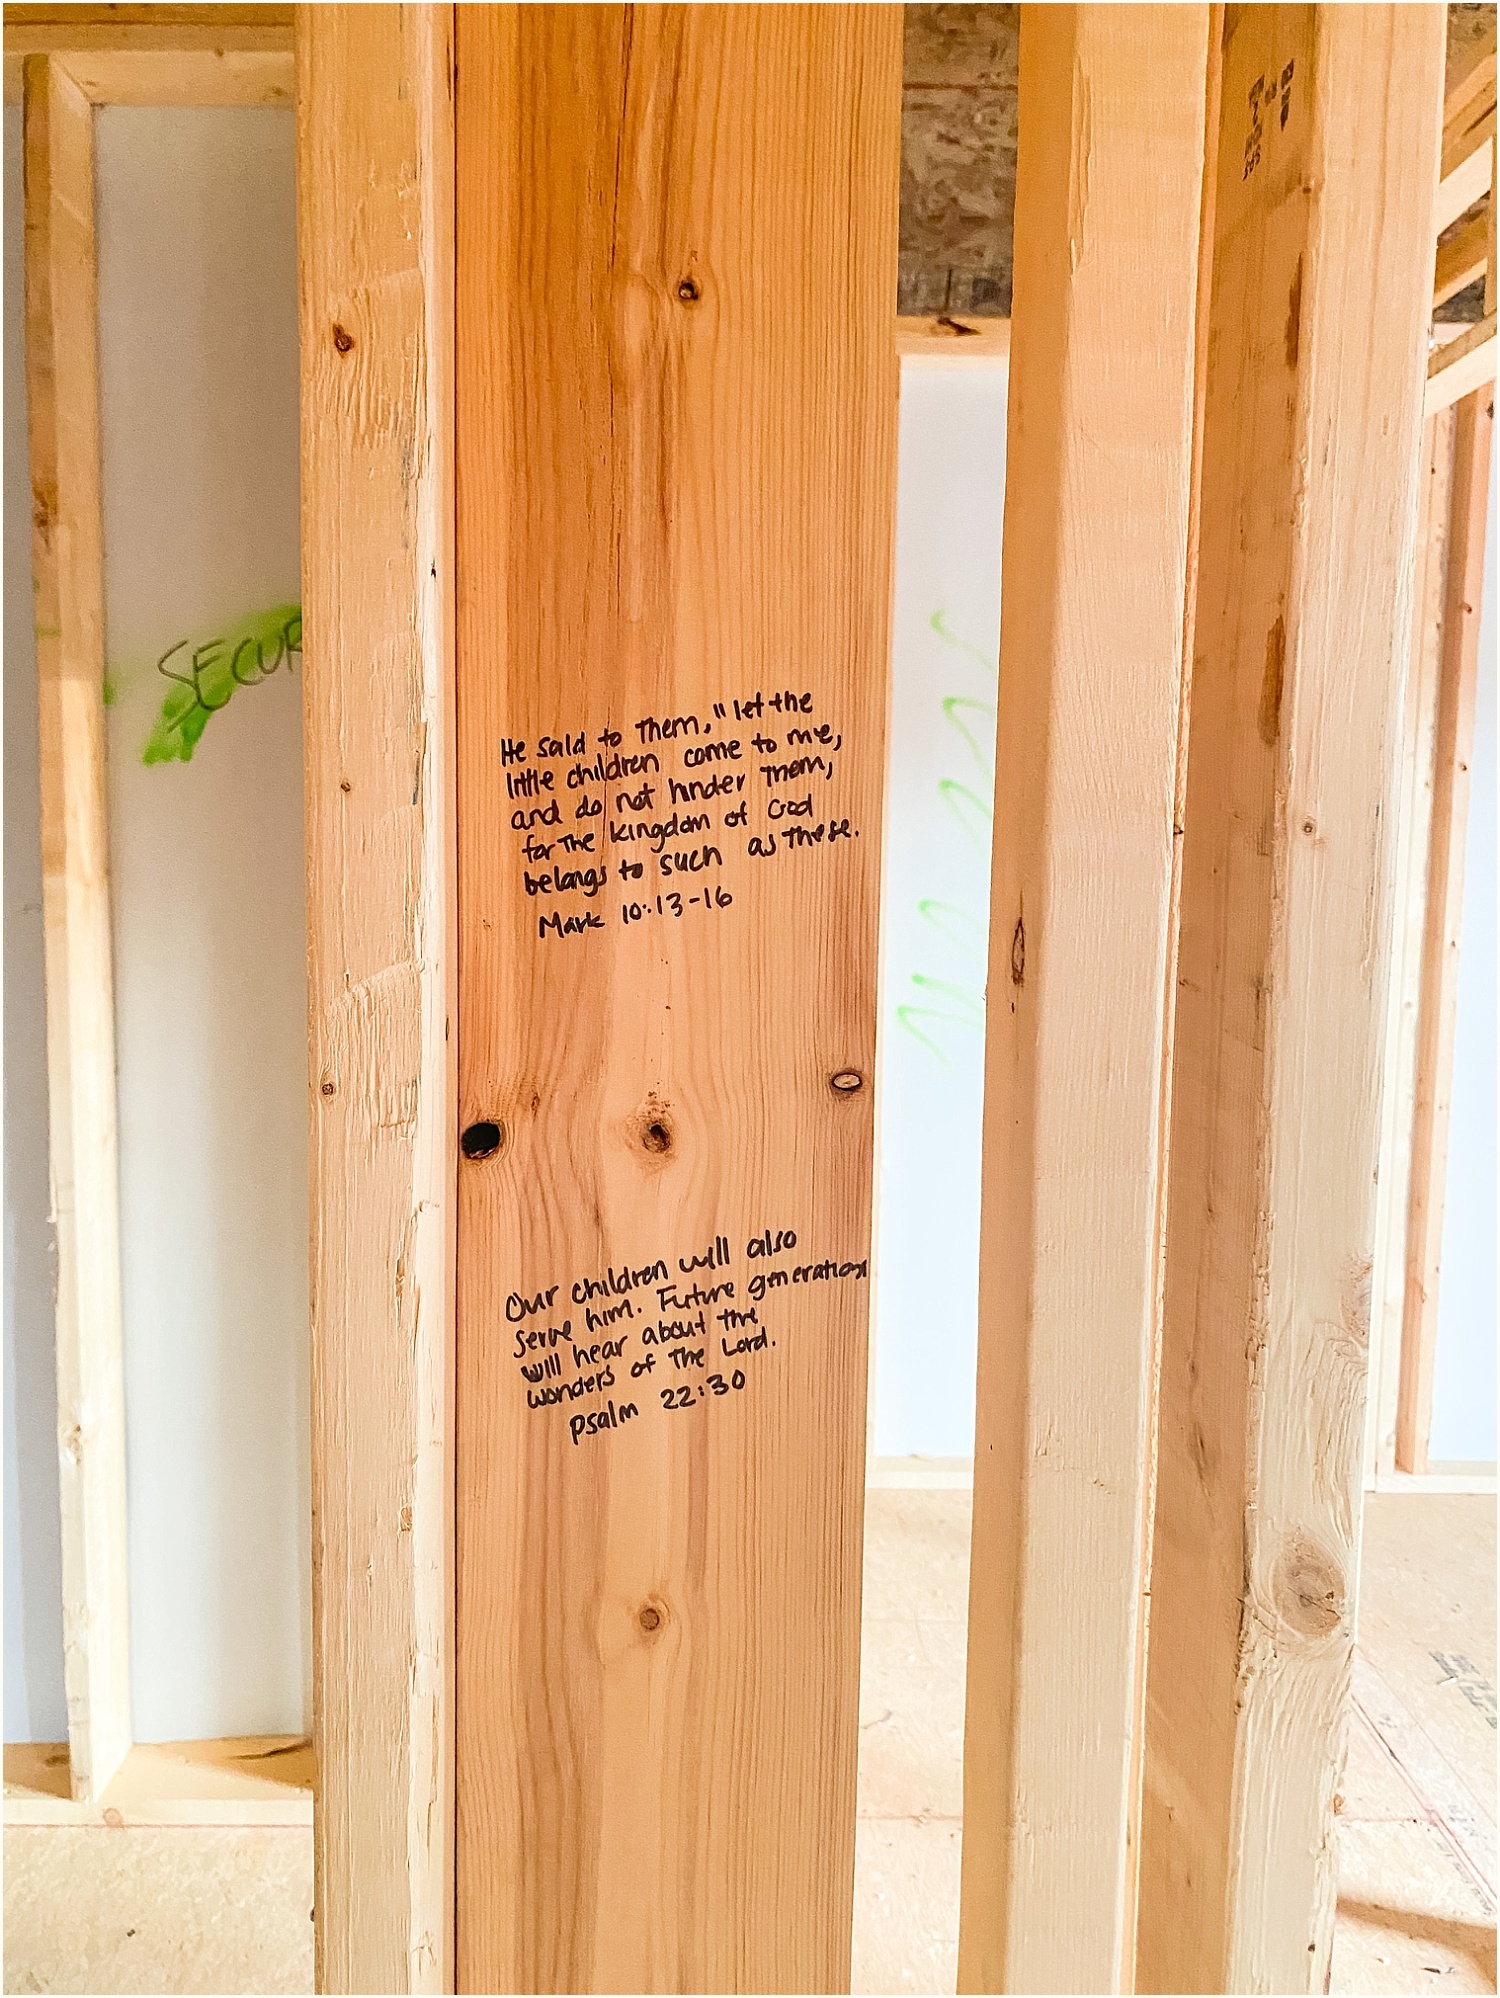 SECUR
He said to them, "let the
little children come to me,
and do not hinder them,
for the kingdom of God
belongs to such as these.
Mark 10:13-16
Our children will also
serve him. Future generations
will hear about the
wonders of the Lord.
psalm 22:30